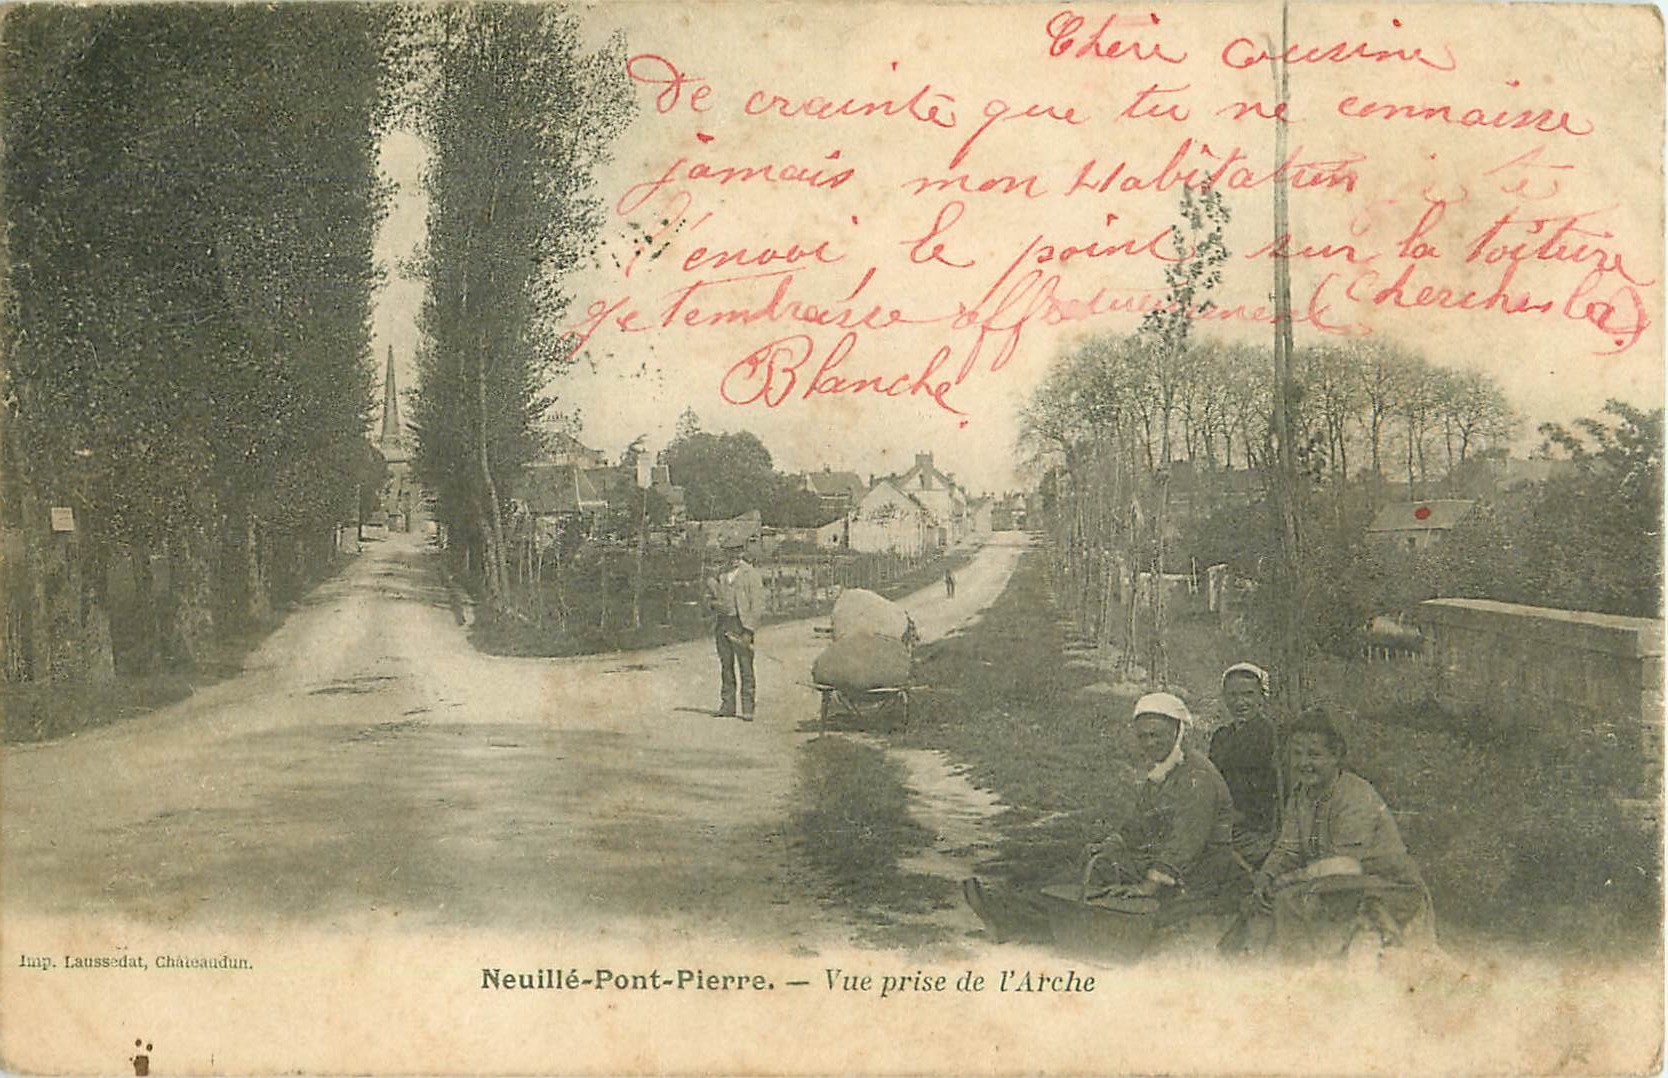 Chère cousine
De crainte que tu ne connaisse
jamais mon Habitation je te
l'envoi, le point sur la toiture
Je t'embrasse affectueusement (Cherches la)
Blanche.
Imp. Laussedat, Châteaudun.
Neuillé-Pont-Pierre. — Vue prise de l'Arche